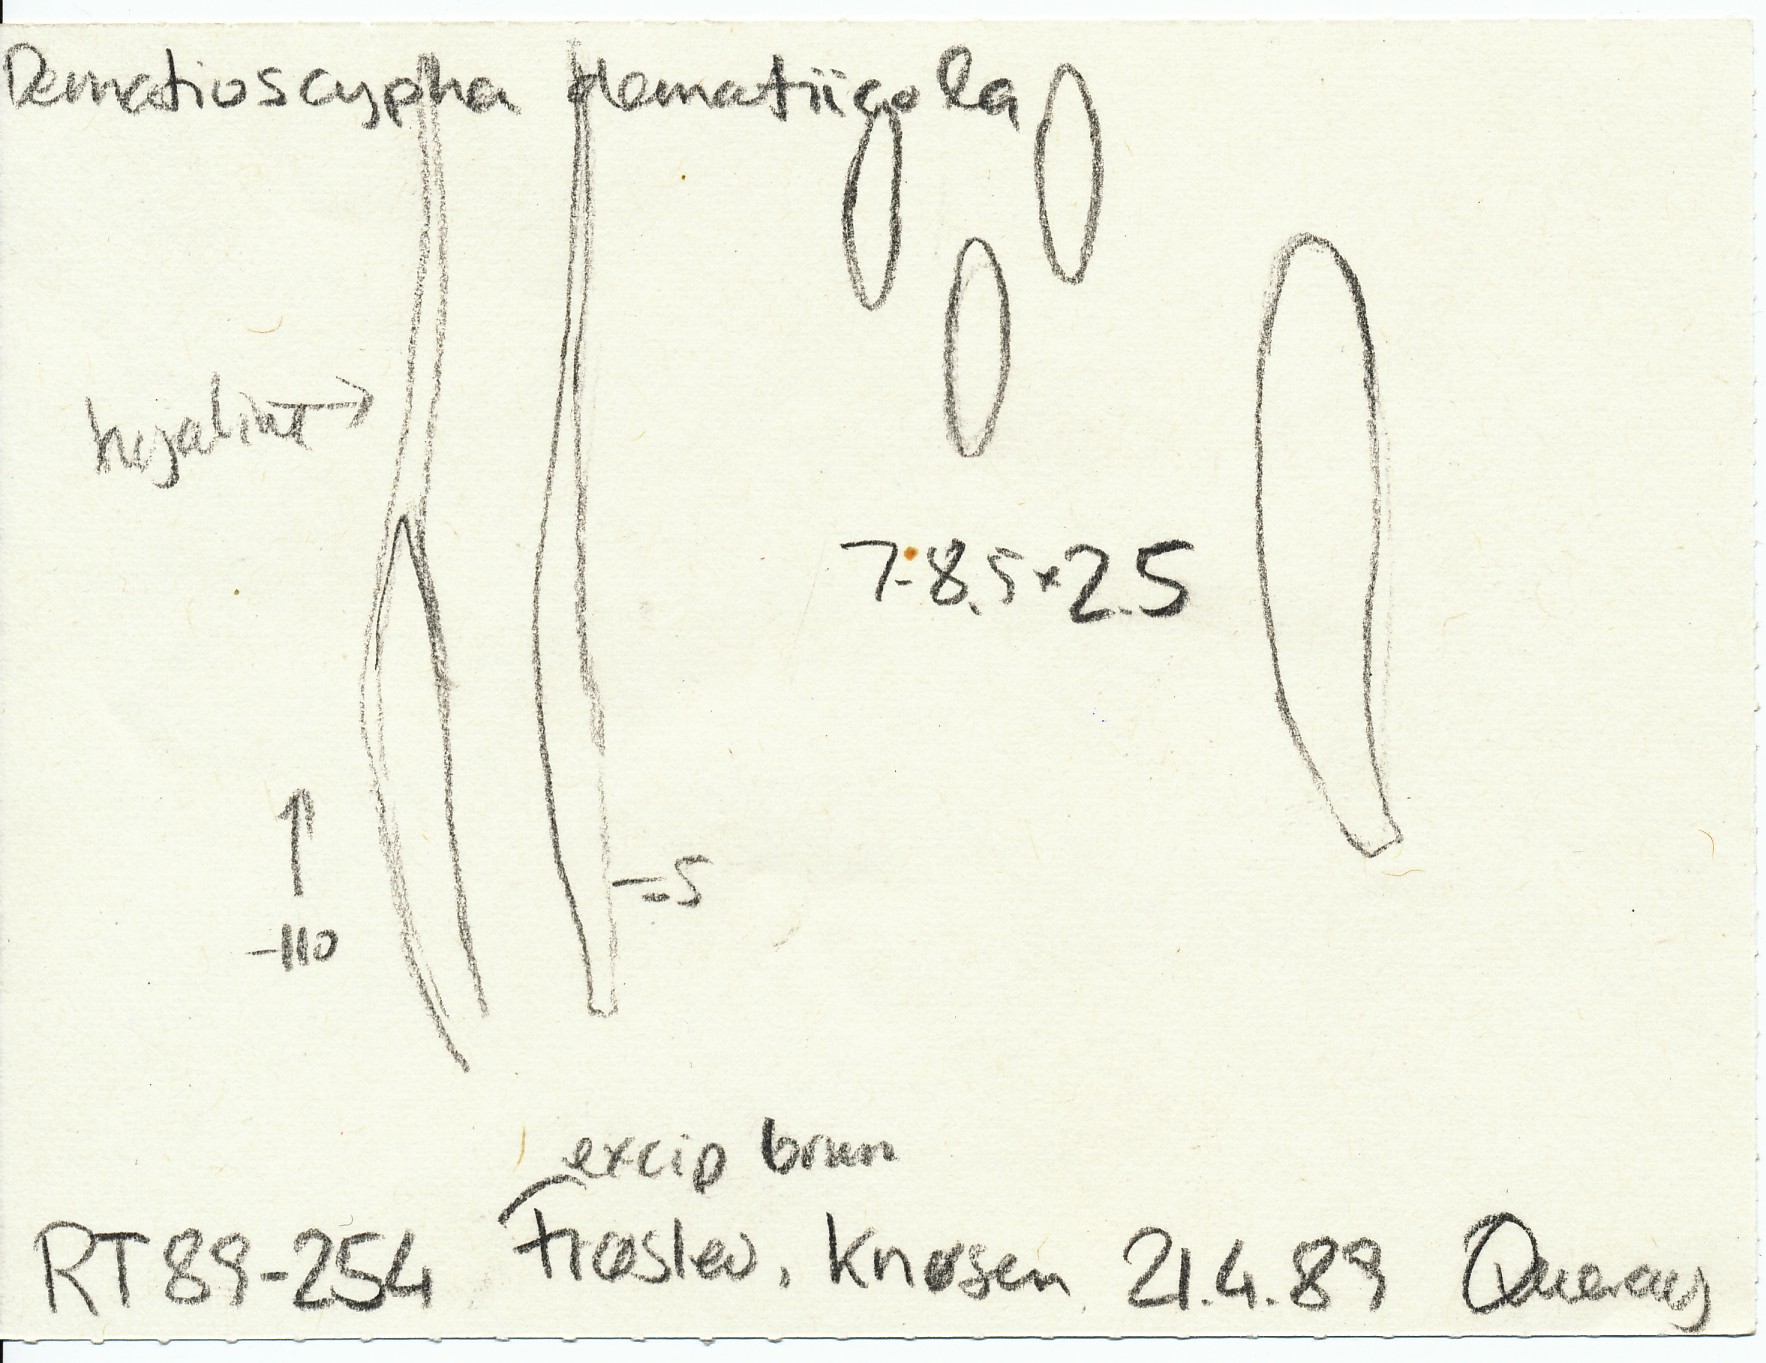 Dematioscypha dematiicola
hyaline →
7-8.5 × 2.5
=5
↑
-110
excip brun
RT 89-254 Frøslev, Knøsen 21.4.89 Quercus